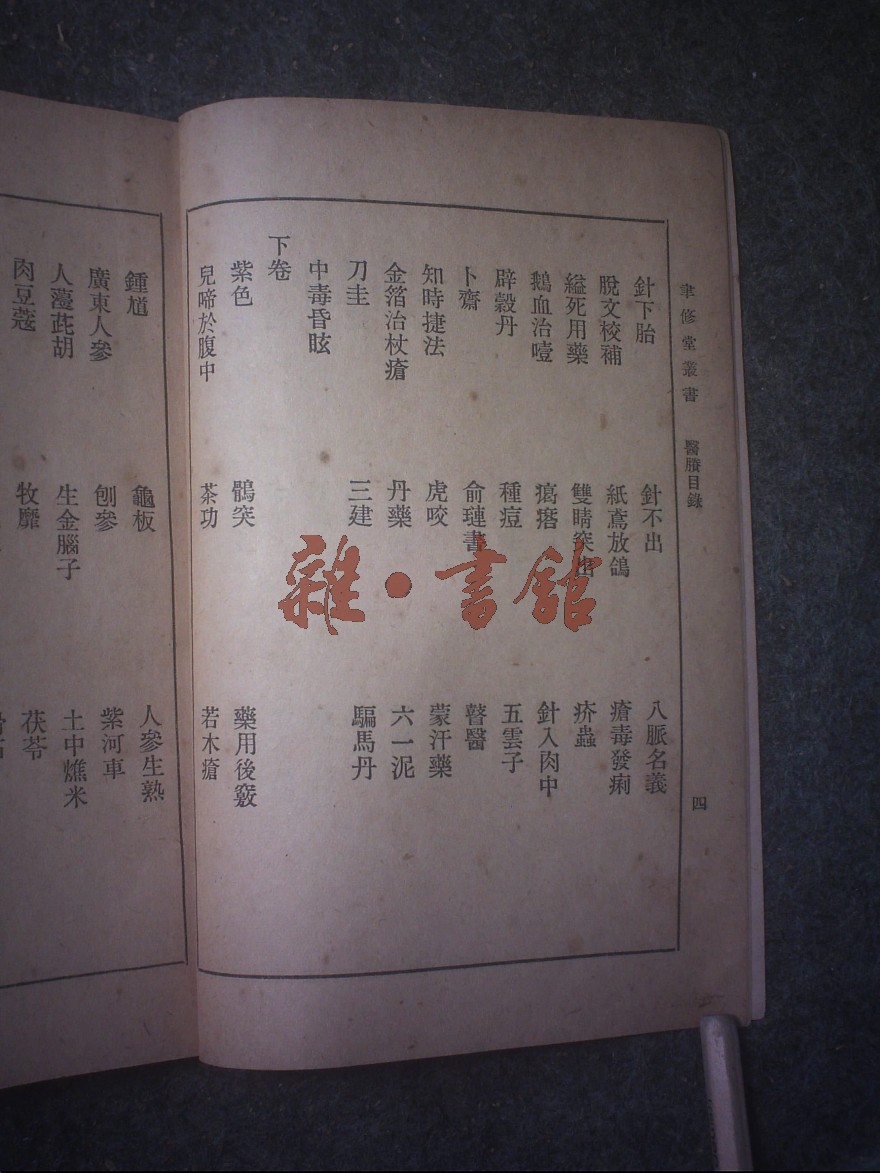 聿修堂叢書 醫賸目錄 四
針下胎 針不出 八脈名義
脫文校補 紙鳶放鴿 瘡毒發痢
縊死用藥 雙睛突出 疥蟲
鵝血治噎 瘑瘩 針入肉中
辟穀丹 種痘 五雲子
卜齋 俞璉書 瞽醫
知時捷法 虎咬 蒙汗藥
金箔治杖瘡 丹藥 六一泥
刀圭 三建 騙馬丹
中毒昏眩
下卷
紫色 鶻突 藥用後竅
兒啼於腹中 茶功 若木瘡
鍾馗 龜板 人參生熟
廣東人參 刨參 紫河車
人薓茈胡 生金腦子 土中燋米
肉豆蔻 牧靡 茯苓
雜·書館